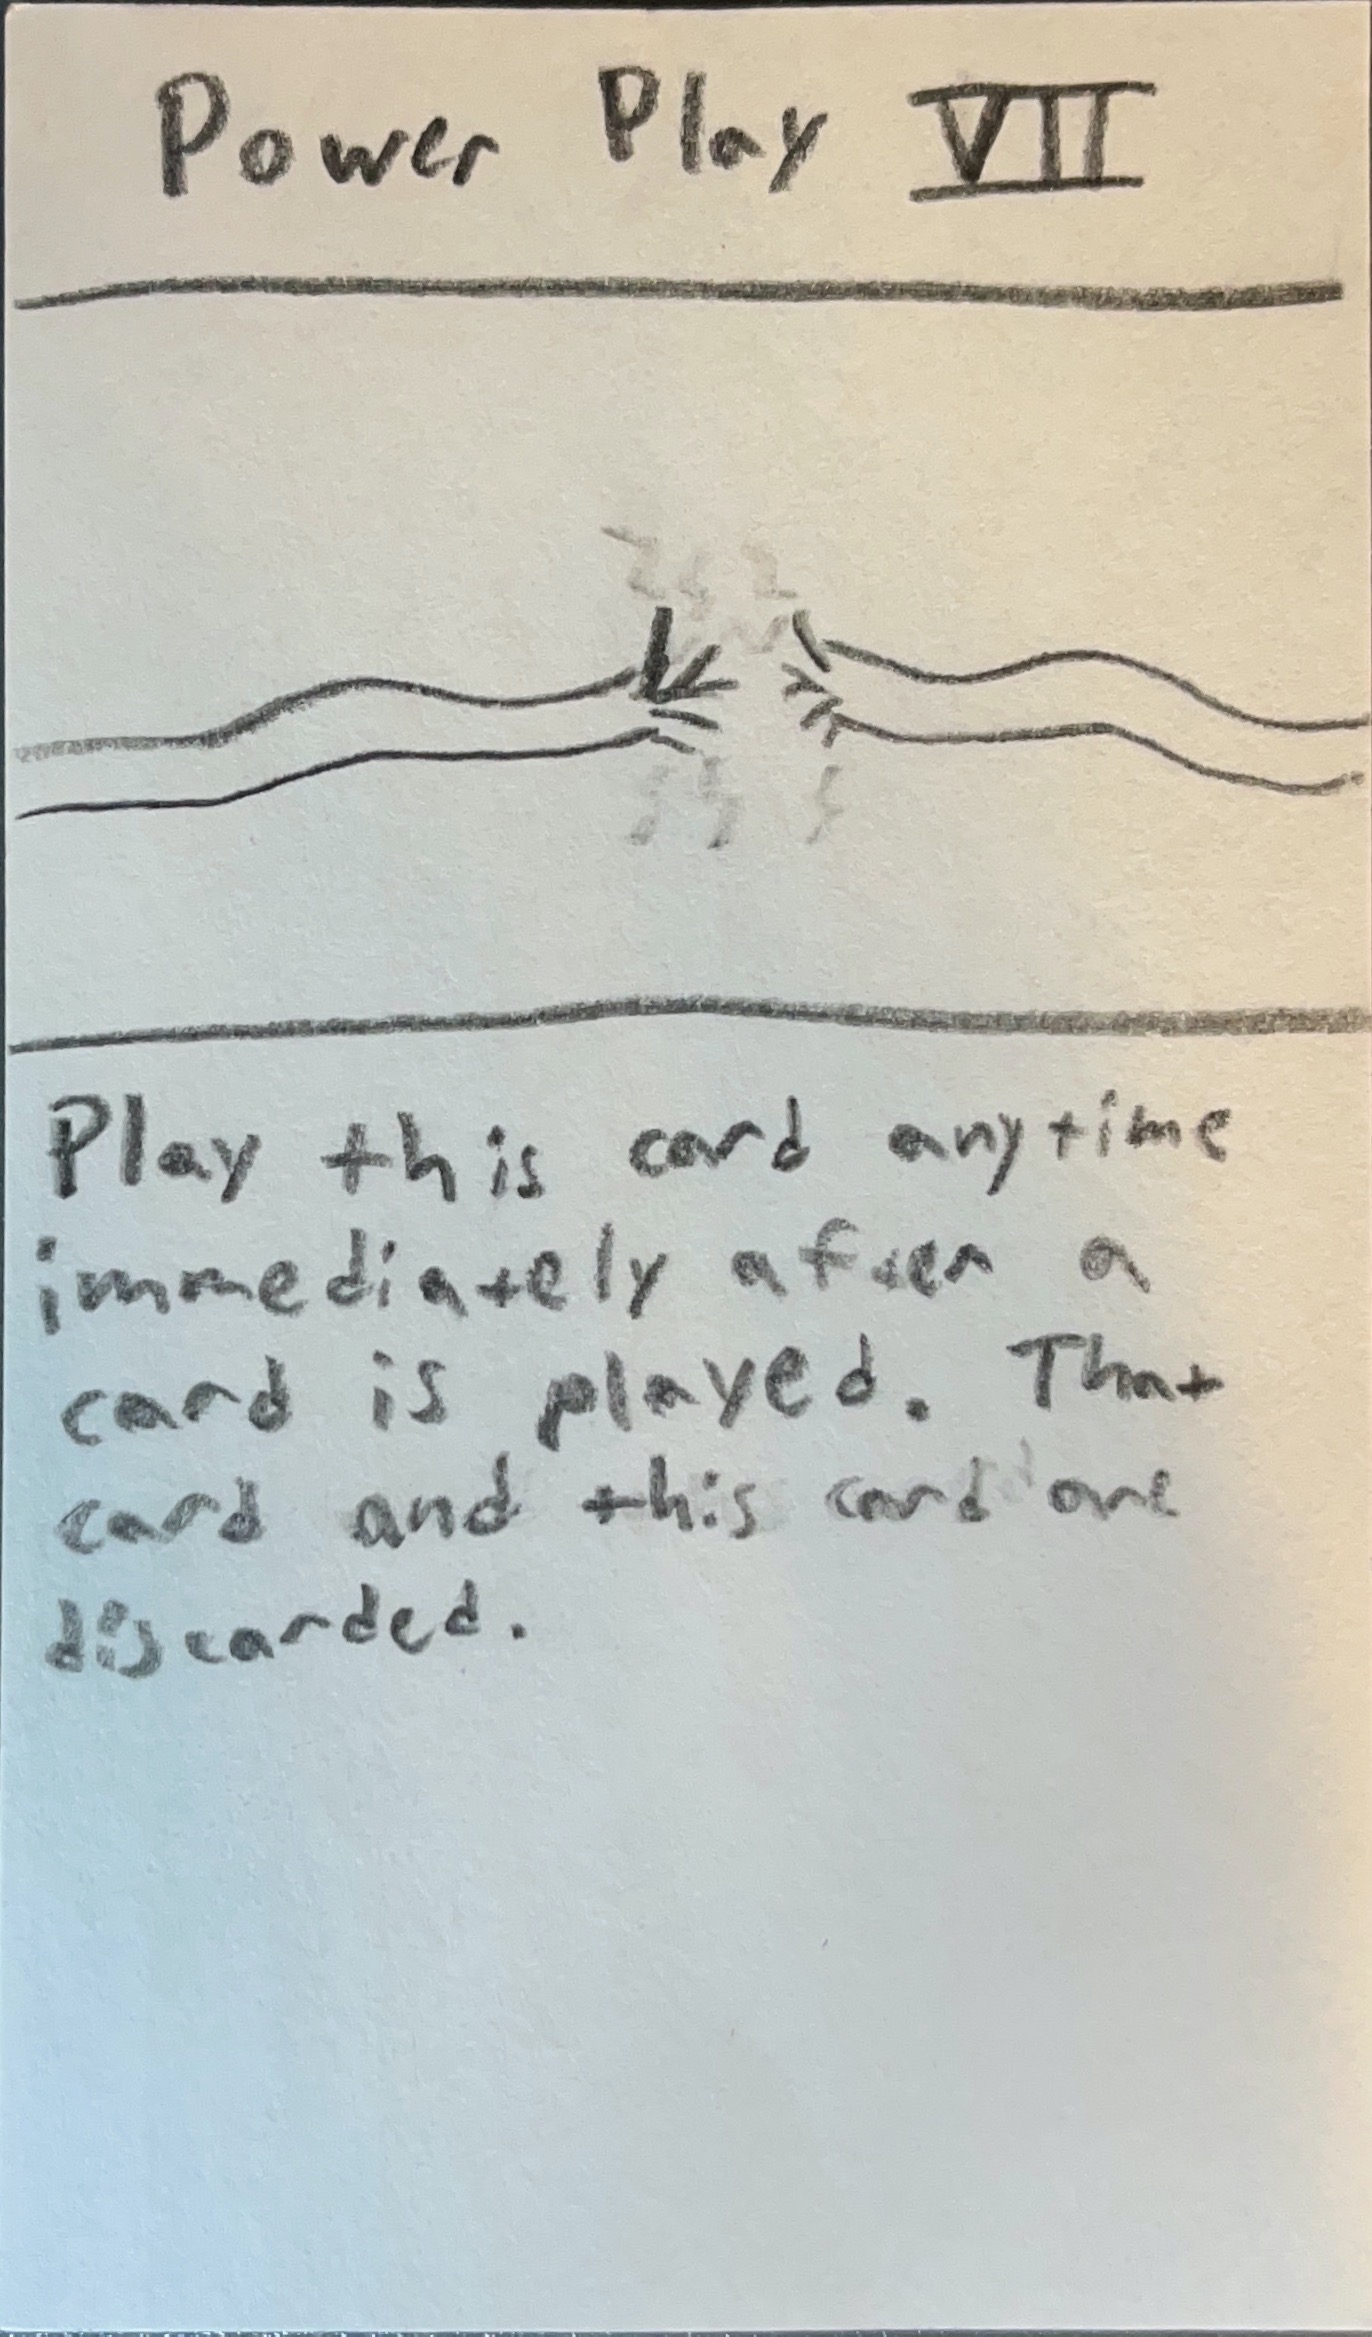 Power Play VII
Play this card anytime
immediately after a
card is played. That
card and this card are
discarded.